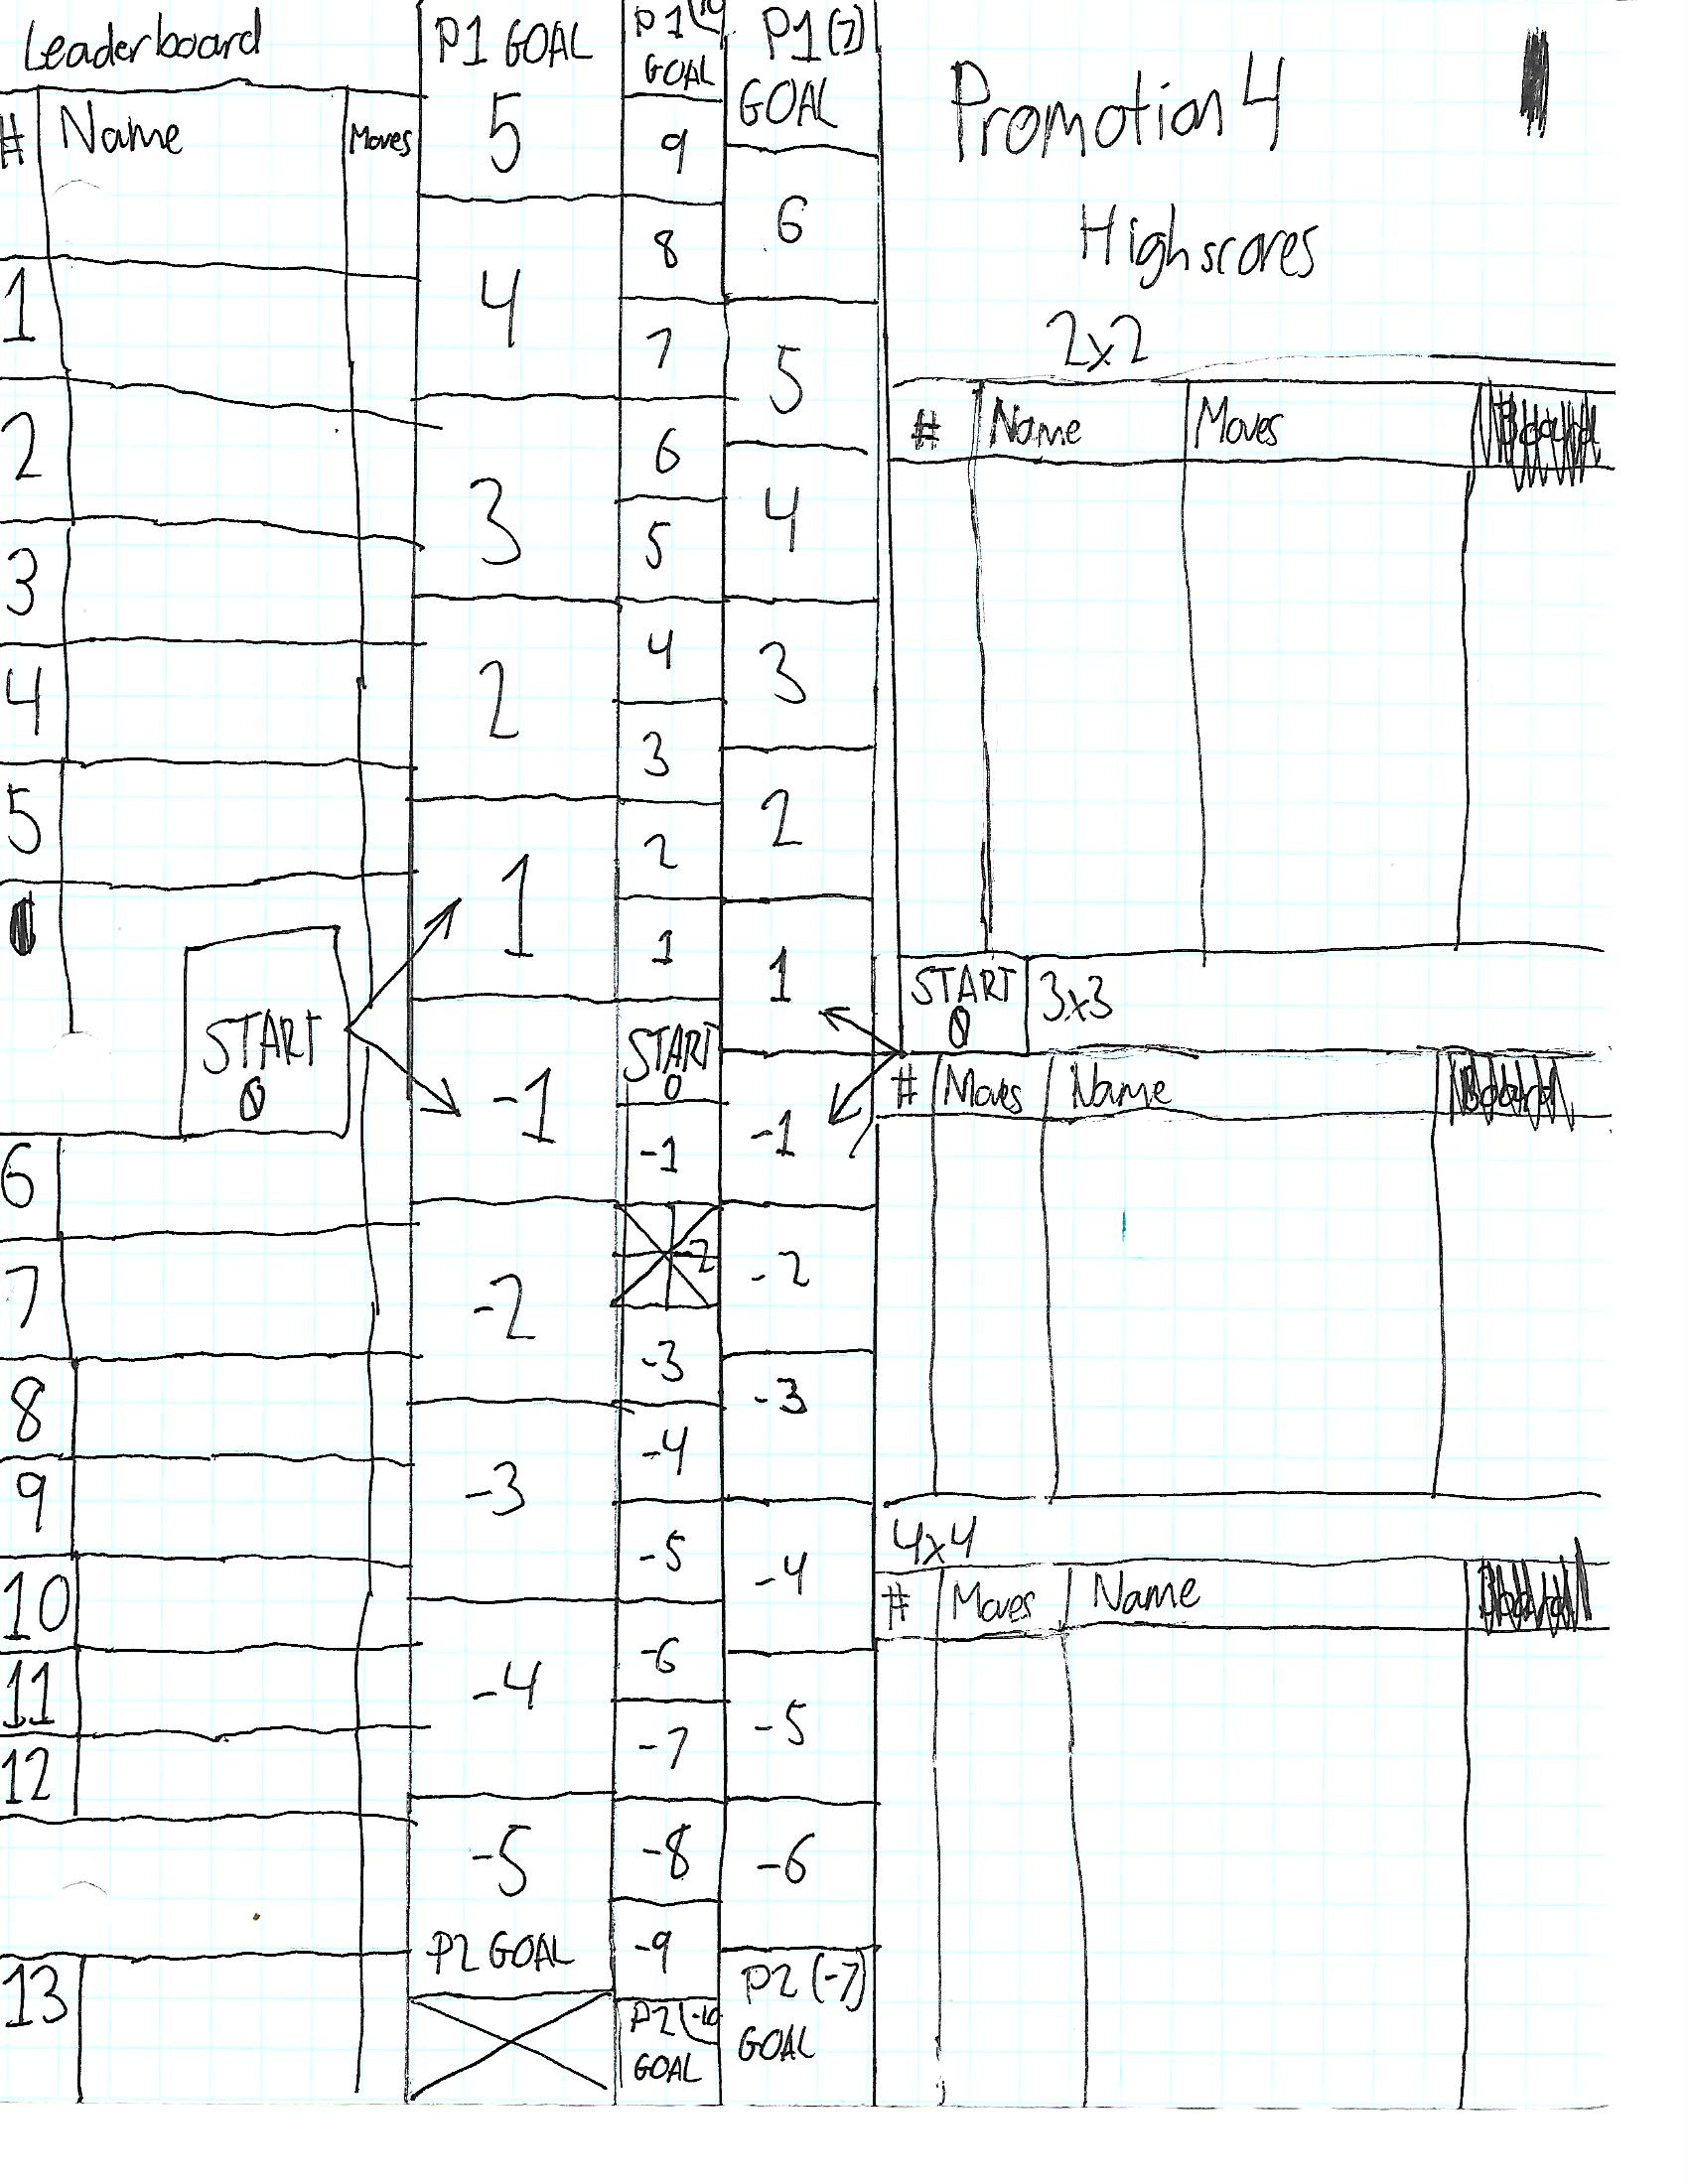 Leaderboard
# Name Moves
1
2
3
4
5
START
0
6
7
8
9
10
11
12
13
P1 GOAL
5
4
3
2
1
-1
-2
-3
-4
-5
P2 GOAL
P1 (10)
GOAL
9
8
7
6
5
4
3
2
1
START
0
-1
-2
-3
-4
-5
-6
-7
-8
-9
P2 (-10
GOAL
P1 (7)
GOAL
6
5
4
3
2
1
-1
-2
-3
-4
-5
-6
P2 (-7)
GOAL
Promotion 4
Highscores
2x2
# Name Moves
START
0
3x3
# Moves Name
4x4
# Moves Name